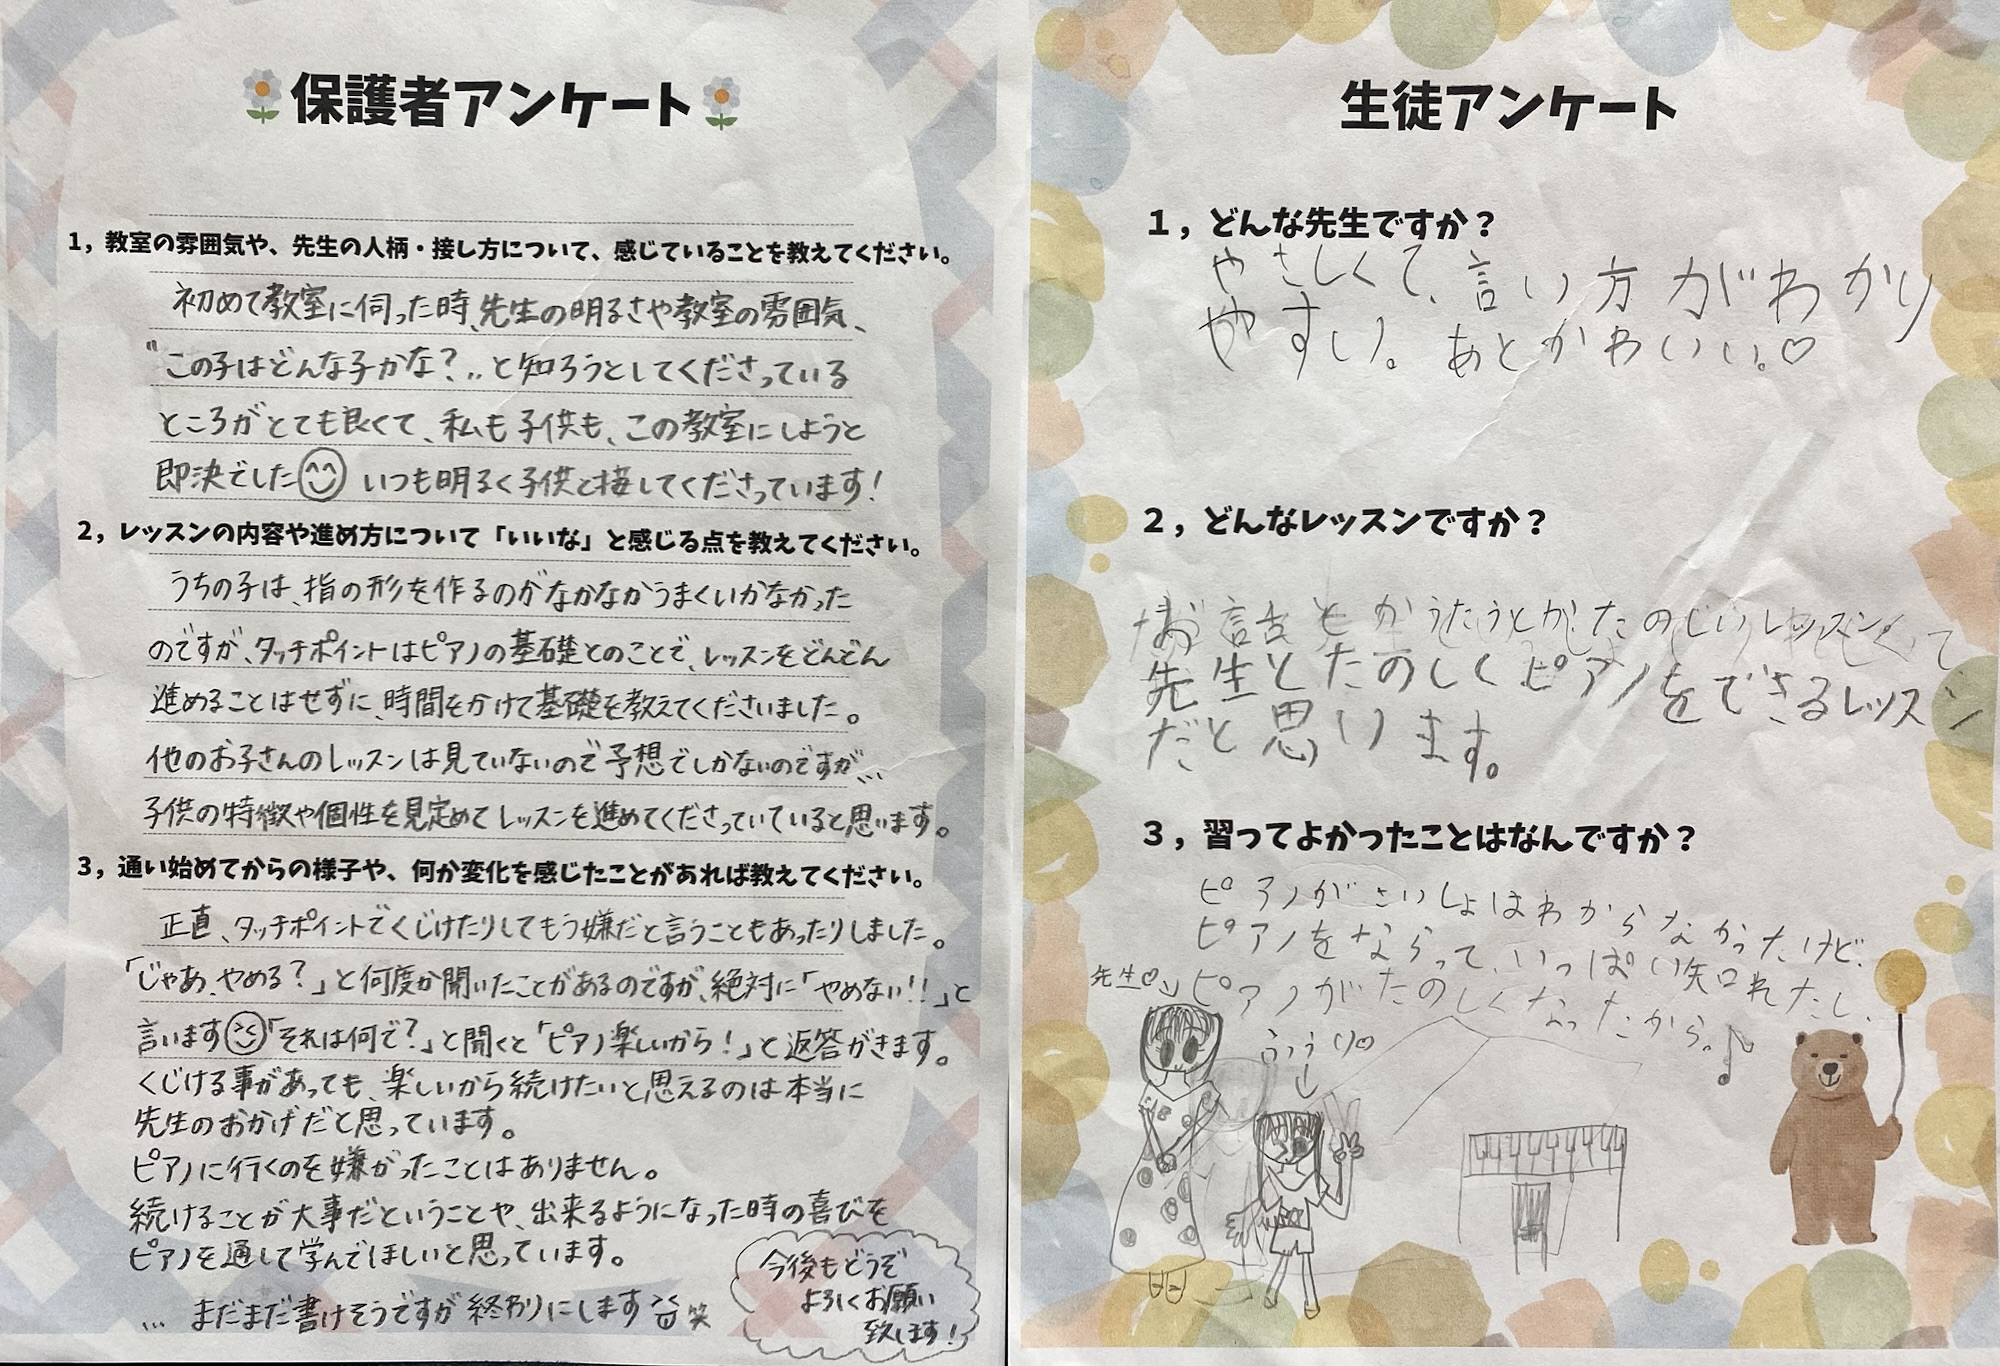 保護者アンケート
1, 教室の雰囲気や、先生の人柄・接し方について、感じていることを教えてください。
初めて教室に伺った時、先生の明るさや教室の雰囲気、
"この子はどんな子かな？"と知ろうとしてくださっている
ところがとても良くて、私も子供も、この教室にしようと
即決でした いつも明るく子供と接してくださっています！
2, レッスンの内容や進め方について「いいな」と感じる点を教えてください。
うちの子は、指の形を作るのがなかなかうまくいかなかった
のですが、タッチポイントはピアノの基礎とのことで、レッスンをどんどん
進めることはせずに、時間をかけて基礎を教えてくださいました。
他のお子さんのレッスンは見ていないので予想でしかないのですが…
子供の特徴や個性を見定めてレッスンを進めてくださっていていると思います。
3, 通い始めてからの様子や、何か変化を感じたことがあれば教えてください。
正直、タッチポイントでくじけたりしてもう嫌だと言うこともあったりしました。
「じゃあ、やめる？」と何度か聞いたことがあるのですが、絶対に「やめない!!」と
言います「それは何で？」と聞くと「ピアノ楽しいから！」と返答がきます。
くじける事があっても、楽しいから続けたいと思えるのは本当に
先生のおかげだと思っています。
ピアノに行くのを嫌がったことはありません。
続けることが大事だということや、出来るようになった時の喜びを
ピアノを通して学んでほしいと思っています。
… まだまだ書けそうですが終わりにします 笑
今後もどうぞ
よろしくお願い
致します！
生徒アンケート
1, どんな先生ですか？
やさしくて、言い方がわかり
やすい。あとかわいい。♡
2, どんなレッスンですか？
お話とかうたうとか、たのしいレッスン。
先生とたのしくピアノをできるレッスン
だと思います。
3, 習ってよかったことはなんですか？
ピアノがさいしょはわからなかったけど、
ピアノをならって、いっぱい知れたし、
ピアノがたのしくなったから。♪
先生♡